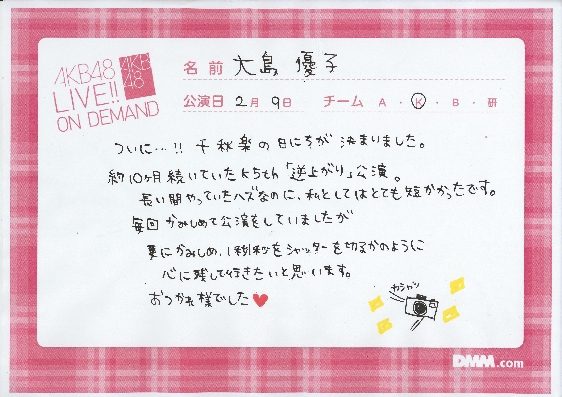 AKB48
LIVE!!
ON DEMAND
AKB
48
名前 大島 優子
公演日 2月 9日 チーム A・K・B・研
ついに…!! 千秋楽の日にちが 決まりました。
約10ヶ月続いていたK5th「逆上がり」公演。
長い間やっていたハズなのに、私としてはとても短かったです。
毎回かみしめて公演をしていましたが
更にかみしめ、1秒1秒をシャッターを切るかのように
心に残して行きたいと思います。
おつかれ様でした♥
カシャッ
DMM.com